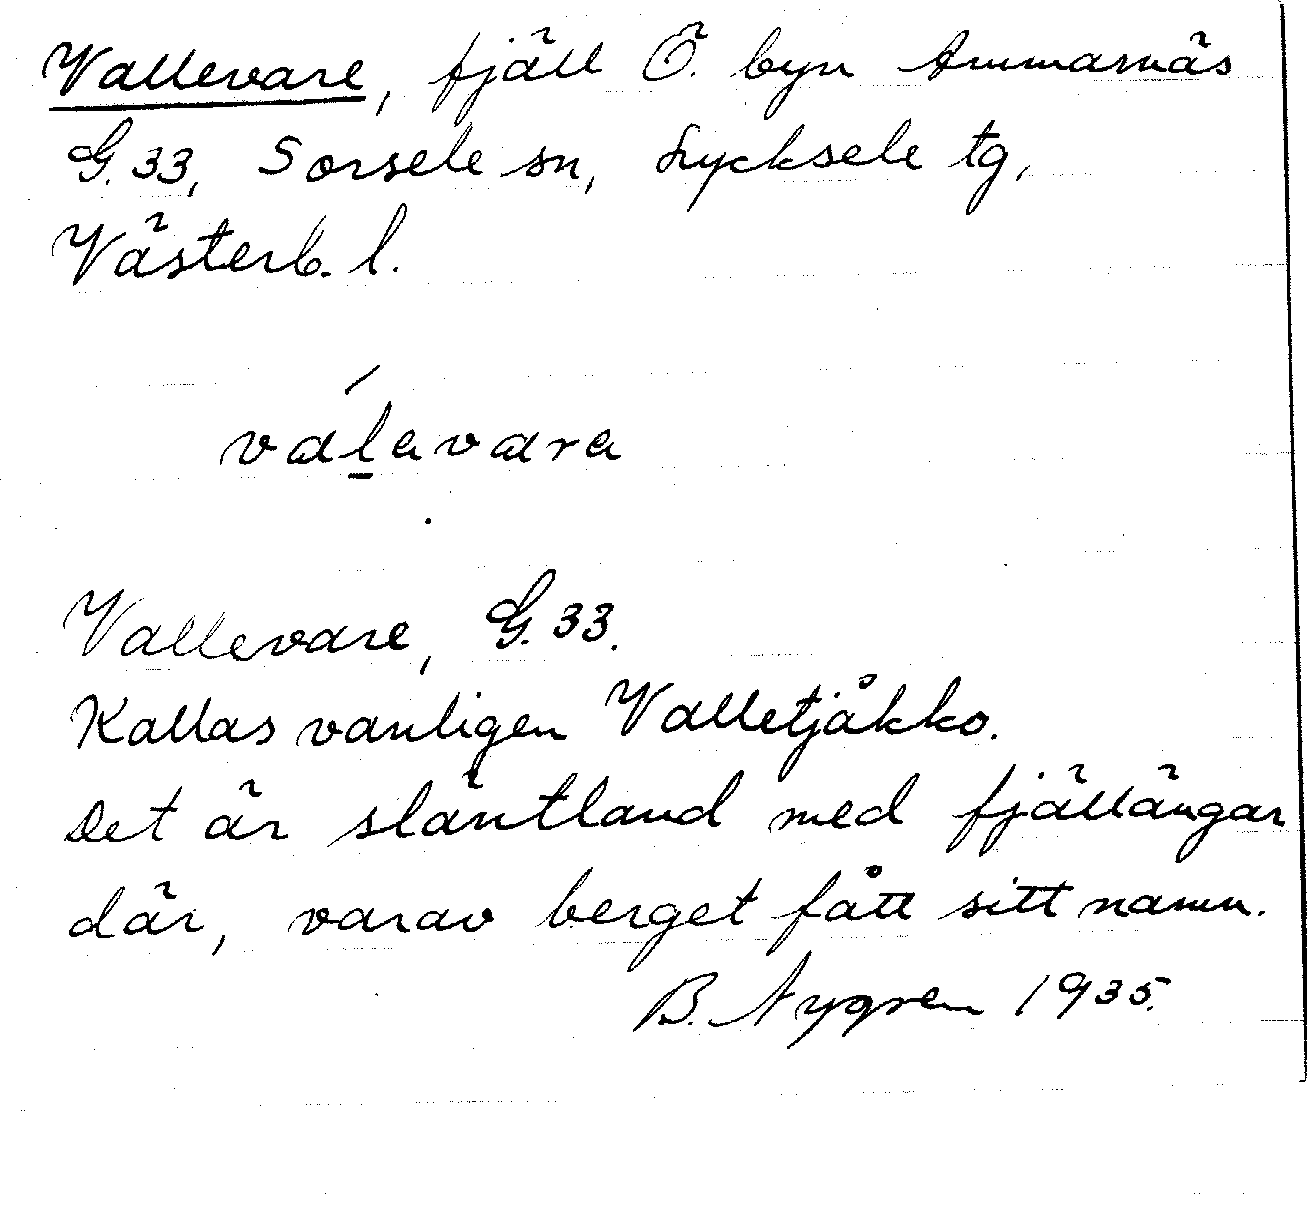 Vallevare, fjäll Ö. byn Ammarnäs
G. 33, Sorsele sn, Lycksele tg,
Västerb. l.
val̲avara
Vallevare, G. 33.
Kallas vanligen Valletjåkko.
Det är släntland med fjällängar
där, varav berget fått sitt namn.
B. Nygren 1935.